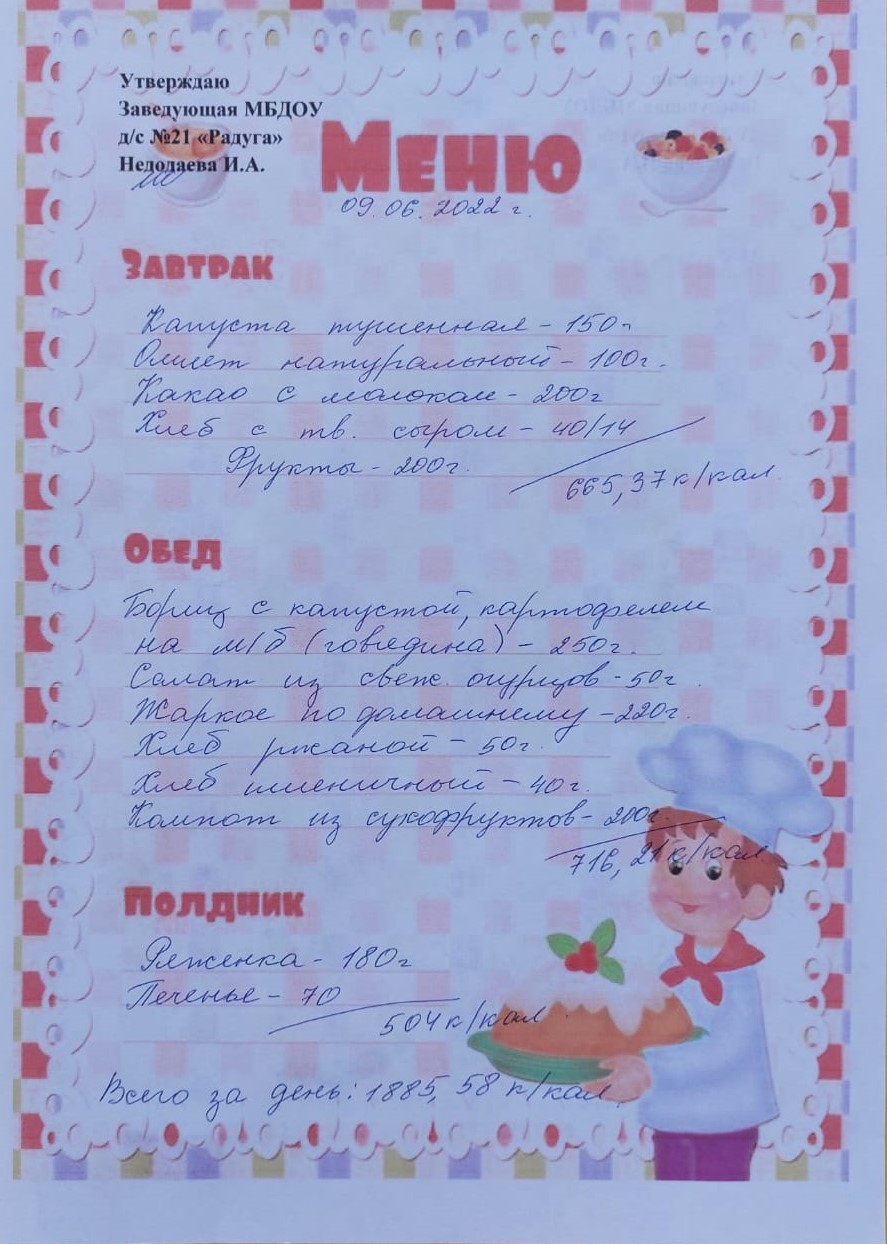 Утверждаю
Заведующая МБДОУ
д/с №21 «Радуга»
Недодаева И.А.
Меню
09.06.2022 г.
Завтрак
Капуста тушенная - 150г
Омлет натуральный - 100г.
Какао с молоком - 200г
Хлеб с тв. сыром - 40/14
Фрукты - 200г.
665,37 к/кал
Обед
Борщ с капустой, картофелем
на м/б (говядина) - 250г.
Салат из свеж. огурцов - 50г.
Жаркое по домашнему - 220г.
Хлеб ржаной - 50г.
Хлеб пшеничный - 40г.
Компот из сухофруктов - 200г.
716,21 к/кал
Полдник
Ряженка - 180г
Печенье - 70
504 к/кал
Всего за день: 1885,58 к/кал